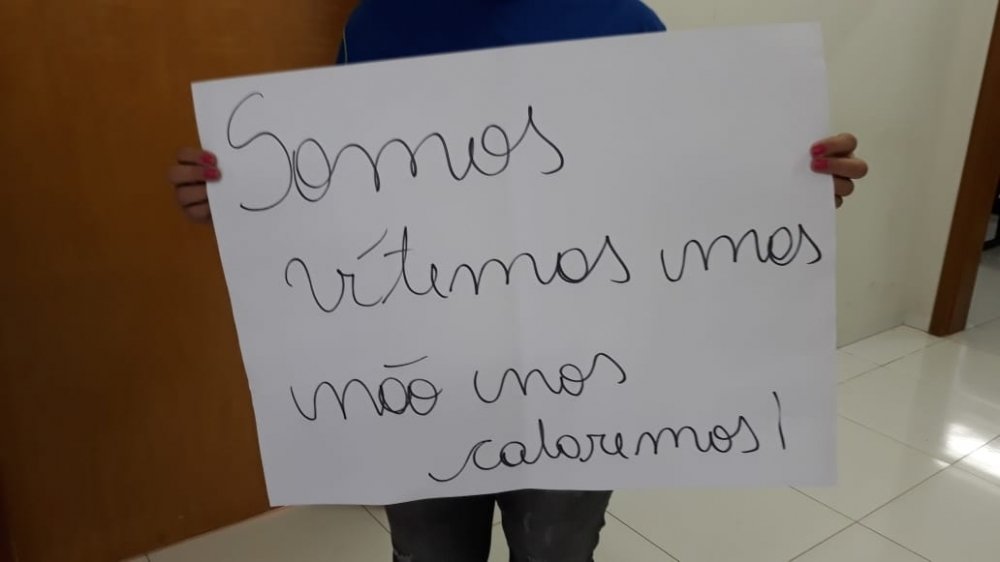 Somos
vítemos mos
não nos
caloremos!